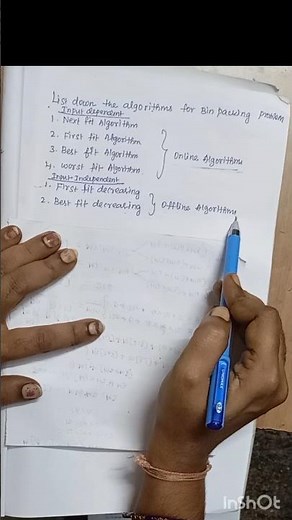 List down the algorithms for Bin packing problem
Input dependent
1. Next fit Algorithm
2. First fit Algorithm
3. Best fit Algorithm
4. Worst fit Algorithm
} Online Algorithms
Input Independent
1. First fit decreasing
2. Best fit decreasing
} Offline Algorithms
InShOt